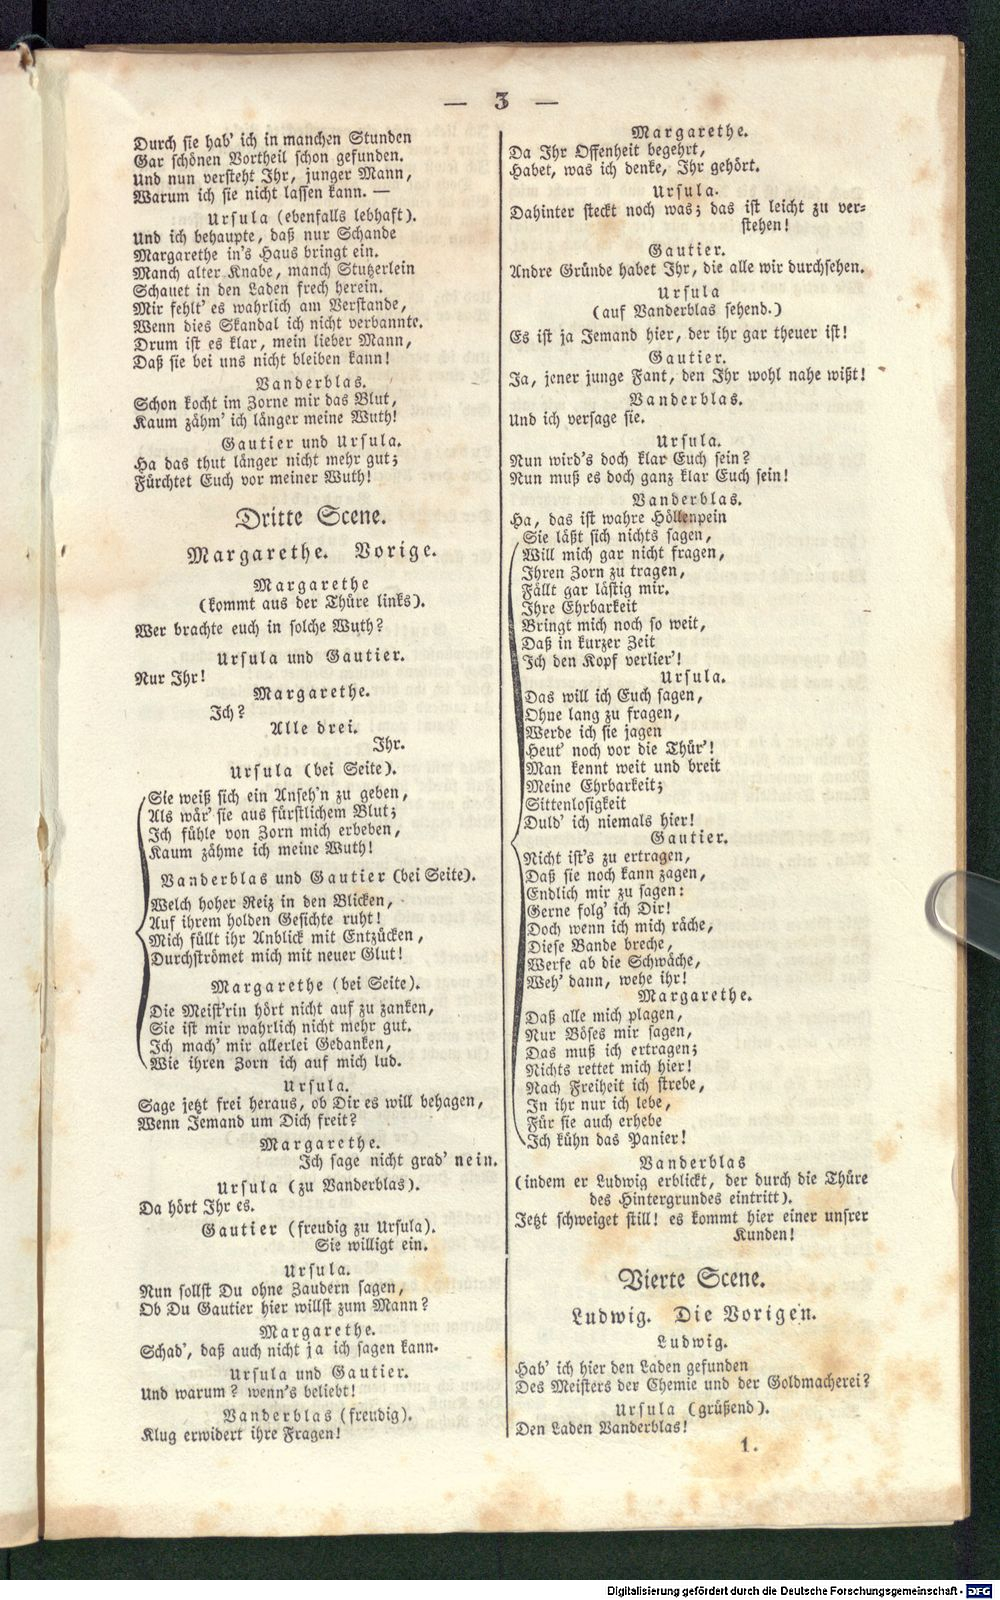 — 3 —
Durch sie hab' ich in manchen Stunden
Gar schönen Vortheil schon gefunden.
Und nun versteht Ihr, junger Mann,
Warum ich sie nicht lassen kann. —
Ursula (ebenfalls lebhaft).
Und ich behaupte, daß nur Schande
Margarethe in's Haus bringt ein.
Manch alter Knabe, manch Stutzerlein
Schauet in den Laden frech herein.
Mir fehlt' es wahrlich am Verstande,
Wenn dies Skandal ich nicht verbannte.
Drum ist es klar, mein lieber Mann,
Daß sie bei uns nicht bleiben kann!
Vanderblas.
Schon kocht im Zorne mir das Blut,
Kaum zähm' ich länger meine Wuth!
Gautier und Ursula.
Ha das thut länger nicht mehr gut;
Fürchtet Euch vor meiner Wuth!
Dritte Scene.
Margarethe. Vorige.
Margarethe
(kommt aus der Thüre links).
Wer brachte euch in solche Wuth?
Ursula und Gautier.
Nur Ihr!
Margarethe.
Ich?
Alle drei.
Ihr.
Ursula (bei Seite).
Sie weiß sich ein Anseh'n zu geben,
Als wär' sie aus fürstlichem Blut;
Ich fühle von Zorn mich erbeben,
Kaum zähme ich meine Wuth!
Vanderblas und Gautier (bei Seite).
Welch hoher Reiz in den Blicken,
Auf ihrem holden Gesichte ruht!
Mich füllt ihr Anblick mit Entzücken,
Durchströmet mich mit neuer Glut!
Margarethe (bei Seite).
Die Meist'rin hört nicht auf zu zanken,
Sie ist mir wahrlich nicht mehr gut.
Ich mach' mir allerlei Gedanken,
Wie ihren Zorn ich auf mich lud.
Ursula.
Sage jetzt frei heraus, ob Dir es will behagen,
Wenn Jemand um Dich freit?
Margarethe.
Ich sage nicht grad' nein.
Ursula (zu Vanderblas).
Da hört Ihr es.
Gautier (freudig zu Ursula).
Sie willigt ein.
Ursula.
Nun sollst Du ohne Zaudern sagen,
Ob Du Gautier hier willst zum Mann?
Margarethe.
Schad', daß auch nicht ja ich sagen kann.
Ursula und Gautier.
Und warum? wenn's beliebt!
Vanderblas (freudig).
Klug erwidert ihre Fragen!
Margarethe.
Da Ihr Offenheit begehrt,
Habet, was ich denke, Ihr gehört.
Ursula.
Dahinter steckt noch was; das ist leicht zu ver-
stehen!
Gautier.
Andre Gründe habet Ihr, die alle wir durchsehen.
Ursula
(auf Vanderblas sehend.)
Es ist ja Jemand hier, der ihr gar theuer ist!
Gautier.
Ja, jener junge Fant, den Ihr wohl nahe wißt!
Vanderblas.
Und ich versage sie.
Ursula.
Nun wird's doch klar Euch sein?
Nun muß es doch ganz klar Euch sein!
Vanderblas.
Ha, das ist wahre Höllenpein
Sie läßt sich nichts sagen,
Will mich gar nicht fragen,
Ihren Zorn zu tragen,
Fällt gar lästig mir.
Ihre Ehrbarkeit
Bringt mich noch so weit,
Daß in kurzer Zeit
Ich den Kopf verlier'!
Ursula.
Das will ich Euch sagen,
Ohne lang zu fragen,
Werde ich sie jagen
Heut' noch vor die Thür'!
Man kennt weit und breit
Meine Ehrbarkeit;
Sittenlosigkeit
Duld' ich niemals hier!
Gautier.
Nicht ist's zu ertragen,
Daß sie noch kann zagen,
Endlich mir zu sagen:
Gerne folg' ich Dir!
Doch wenn ich mich räche,
Diese Bande breche,
Werfe ab die Schwäche,
Weh' dann, wehe ihr!
Margarethe.
Daß alle mich plagen,
Nur Böses mir sagen,
Das muß ich ertragen;
Nichts rettet mich hier!
Nach Freiheit ich strebe,
In ihr nur ich lebe,
Für sie auch erhebe
Ich kühn das Panier!
Vanderblas
(indem er Ludwig erblickt, der durch die Thüre
des Hintergrundes eintritt).
Jetzt schweiget still! es kommt hier einer unsrer
Kunden!
Vierte Scene.
Ludwig. Die Vorigen.
Ludwig.
Hab' ich hier den Laden gefunden
Des Meisters der Chemie und der Goldmacherei?
Ursula (grüßend).
Den Laden Vanderblas!
1.
Digitalisierung gefördert durch die Deutsche Forschungsgemeinschaft - DFG